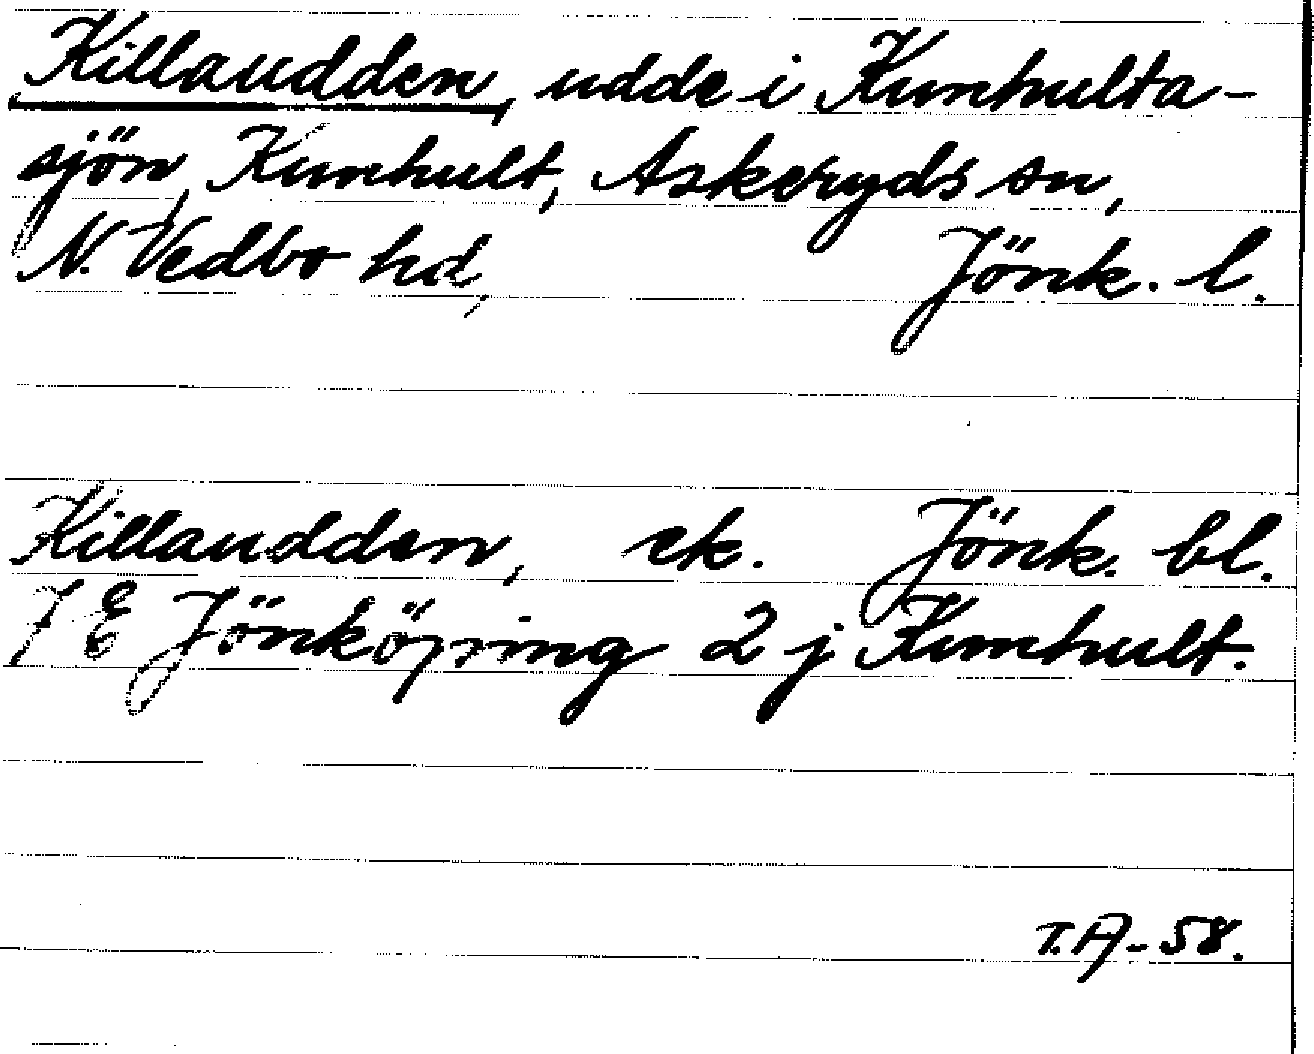 Killaudden, udde i Kumhulta-
sjön, Kumhult, Askeryds sn,
N. Vedbo hd, Jönk. l.
Killaudden, ek. Jönk. bl.
7 E Jönköping 2 j Kumhult.
T.A-58.